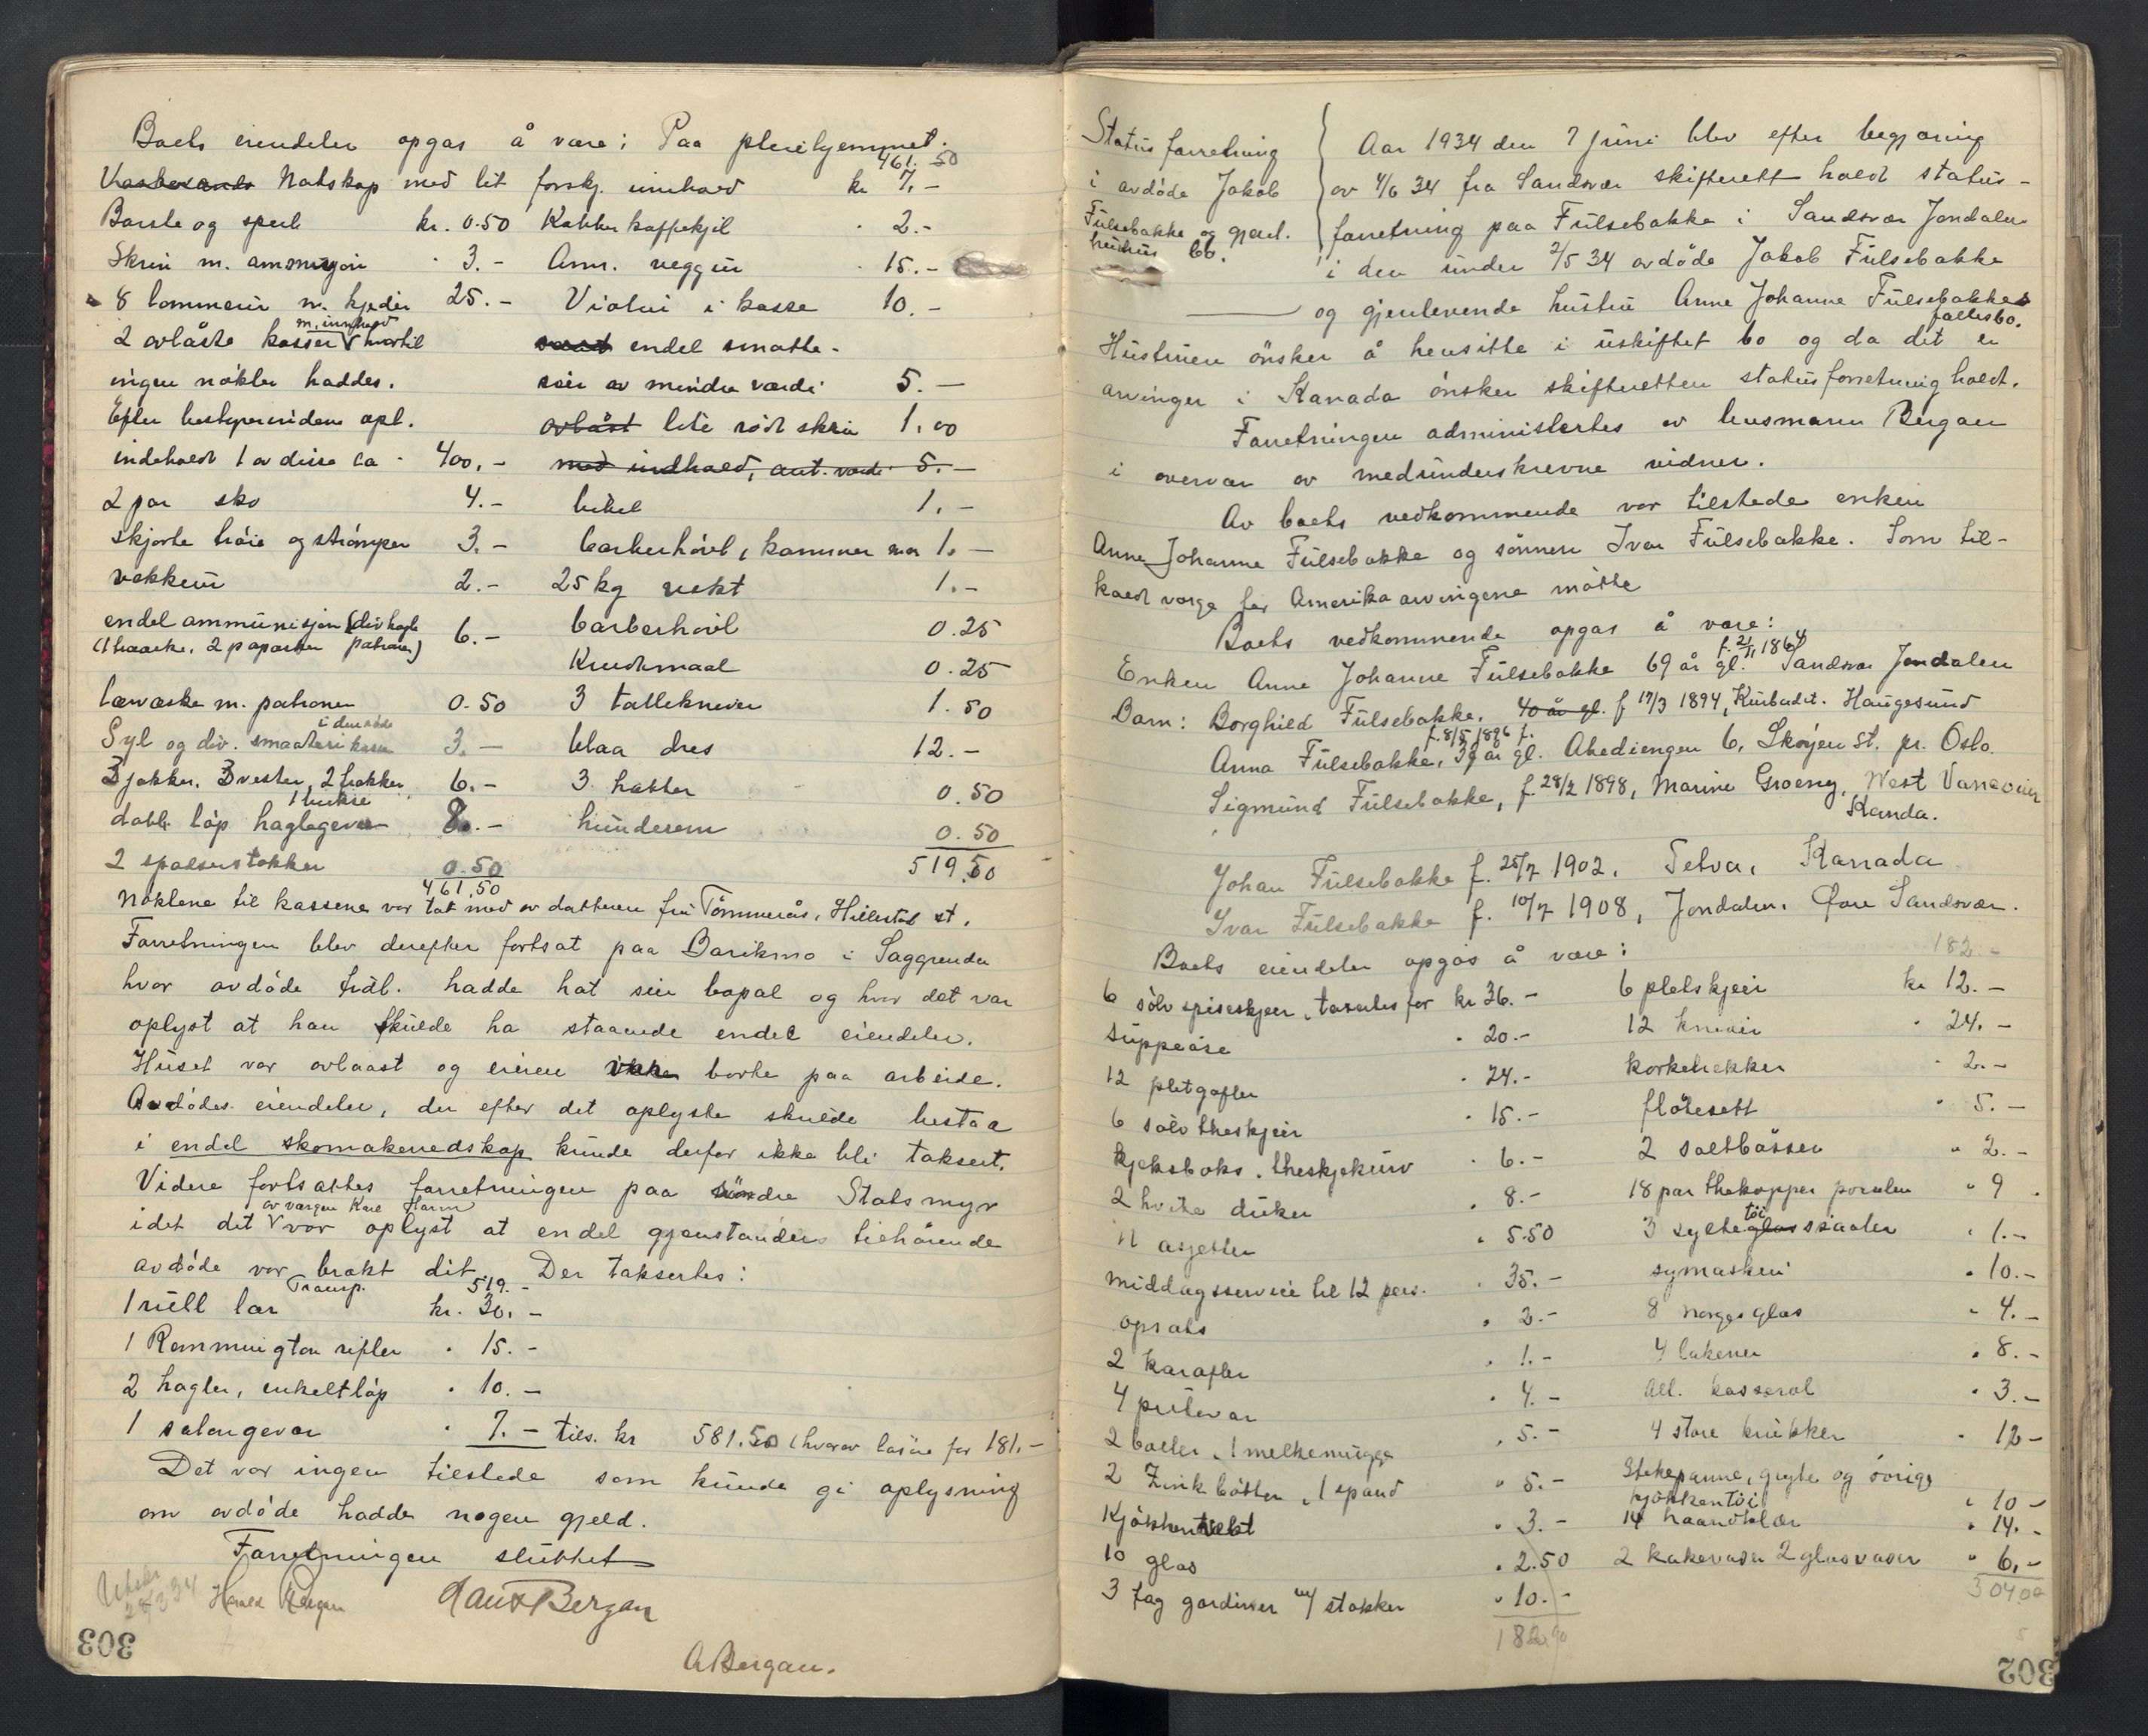 Boets eiendeler opgas å være: Paa pleiehjemmet.
461.50
Natskap med lit forskj. innhold kr 7.-
Børste og speil kr. 0.50 Kobber kaffekjel " 2.-
Skrin m. amonisjon " 3.- Amr. veggur " 15.-
8 lommeur m. kjeder 25.- Violin i kasse 10.-
2 avlåste kasser m. innhold hvortil endel smaatte-
ingen nökler haddes. rier av mindre værdi 5.-
Efter bestyrerinden opl. avlåst lite rödt skrin 1.00
indeholdt 1 av disse ca " 400.- med indhold, ant. værdi 5.-
2 par sko 4.- bibel 1.-
Skjorte tröie og strömper 3.- barberhövl, kammer mm 1.-
vekkeur 2.- 25 kg vekt 1.-
endel ammunisjon (div hagl 6.- barberhövl 0.25
(1 hæske, 2 p papæsker patroner)
Krudtmaal 0.25
lærvæske m. patroner 0.50 3 tolleknever 1.50
i den röde
Syl og div. smaatteri kasse 3.- blaa dres 12.-
3 jakker, 3 vester, 2 frakker 6.- 3 hatter 0.50
1 bukse
dobb. löp haglegevær 8.- hunderem 0.50
2 spaserstokker 0.50 519.50
461.50
Nöklene til kassene var tat med av datteren fru Tömmerås, Hillestad st.
Forretningen blev derefter fortsat paa Barikmo i Saggrenda
hvor avdöde tidl. hadde hat sin bopæl og hvor det var
oplyst at han skulde ha staaende endel eiendeler.
Huset var avlaast og eieren borte paa arbeide.
Avdödes eiendeler, der efter det oplyste skulde bestaa
i endel skomakerredskap kunde derfor ikke bli taksert.
Videre fortsattes forretningen paa söndre Stalsmyr
av værgen Kare Harm
idet det var oplyst at endel gjenstander tilhörende
avdöde var brakt dit. Der taksertes:
Transp. 519.-
1 rull lær kr. 30.-
1 Remmington rifler " 15.-
2 hagler, enkeltlöp " 10.-
1 salongevær " 7.- tils. kr 581.50 (hvorav lösöre for 181.-
Det var ingen tilstede som kunde gi oplysning
om avdöde hadde nogen gjeld.
Forretningen sluttet
Utskr 28/3 34 Harald Bergan Hans Bergan
A Bergan.
303
Status forretning Aar 1934 den 7 juni blev efter begjæring
i avdöde Jakob av 4/6 34 fra Sandsvær skifterett holdt status-
Fulsebakke og gjenl. forretning paa Fulsebakke i Sandsvær Jondalen
hustrus bo. i den under 2/5 34 avdöde Jakob Fulsebakke
og gjenlevende hustru Anne Johanne Fulsebakkes
fællesbo.
Hustruen önsker å hensitte i uskiftet bo og da det er
arvinger i Kanada önsker skifteretten statusforretning holdt.
Forretningen administertes av lensmann Bergan
i overvær av medunderskrevne vidner.
Av boets vedkommende var tilstede enken
Anne Johanne Fulsebakke og sönnen Ivar Fulsebakke. Som til-
kaldt værge for Amerika arvingene mötte
Boets vedkommende opgas å være:
f. 21/11 1864
Enken Anne Johanne Fulsebakke 69 år gl. Sandsvær Jondalen
Barn: Borghild Fulsebakke, 40 år gl. f 17/3 1894, Kurbadet. Haugesund
f. 8/5 1896 f.
Anna Fulsebakke, 39 år gl. Abediengen 6, Sköyen St. pr. Oslo.
Sigmund Fulsebakke, f. 28/2 1898, Marine Groeng, West Vancover
Kanda.
Johan Fulsebakke f. 25/7 1902, Telva, Kanada
Ivar Fulsebakke f. 10/7 1908, Jondalen. Övre Sandsvær.
Boets eiendeler opgås å være: 182.-
6 sölv spiseskjeer, takseres for kr 36.- 6 pletskjeer kr 12.-
Suppeöse " 20.- 12 kniver " 24.-
12 pletgafler " 24.- korketrekker " 2.-
6 sölv theskjeer " 15.- flötesett " 5.-
kjeksboks, theskjekurv " 6.- 2 saltbösser " 2.-
2 hvite duker " 8.- 18 par thekopper porselen " 9.
11 asjetter " 5.50 3 syltetöi glas skaaler " 1.-
middagsservice til 12 pers. " 35.- symaskin " 10.-
opsats " 2.- 8 norgesglas " 4.-
2 karafler " 1.- 4 lakener " 8.-
4 putevar " 4.- All. kasserol " 3.-
2 boller, 1 melkemugge " 5.- 4 store krukker " 12-
2 Zinkbötter, 1 spand " 5.- Stekepanne, gryte og övrige
kjökkentöi " 10-
" 3.- 14 haandklær " 14.-
10 glas " 2.50 2 kakevaser 2 glasvaser " 6.-
3 fag gardiner m/ stokker " 10.- 304.00
302